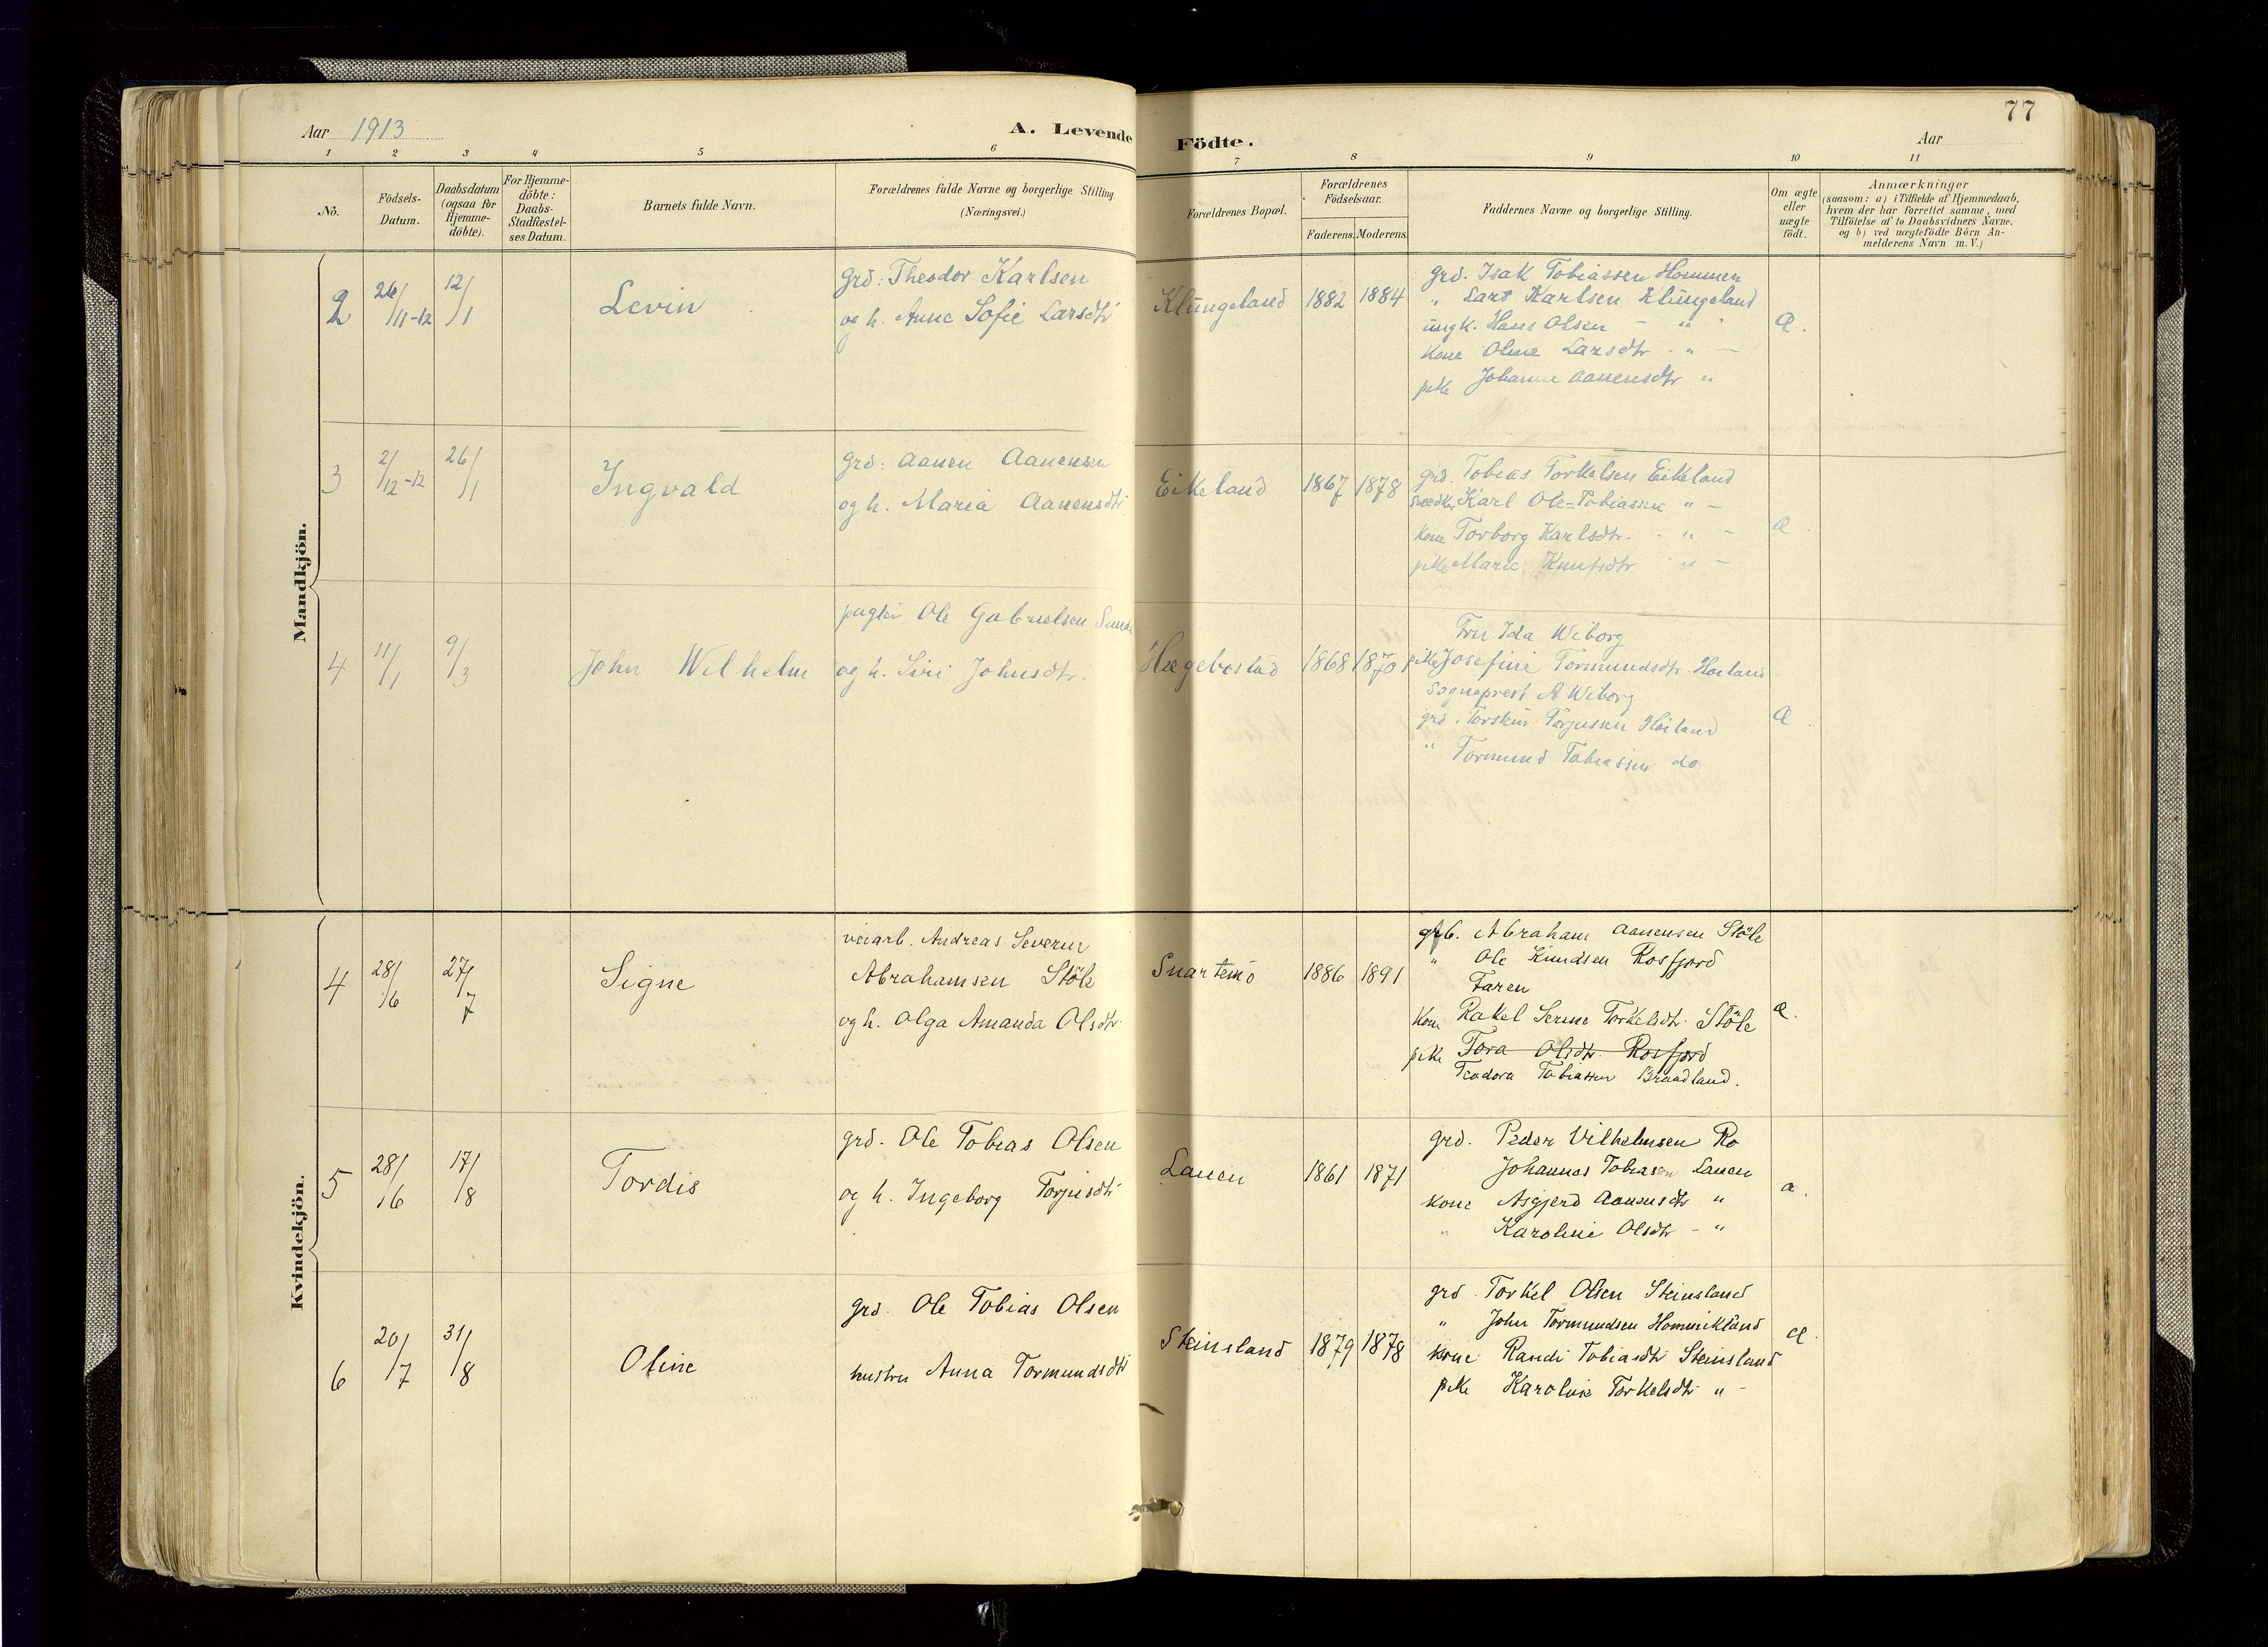 77
Aar 1913
A. Levende Födte.
Aar
1 2 3 4 5 6 7 8 9 10 11
No.
Födsels-Datum.
Daabsdatum (ogsaa for Hjemme-döbte).
For Hjemme-döbte: Daabs-Stadfæstel-ses Datum.
Barnets fulde Navn.
Forældrenes fulde Navne og borgerlige Stilling.
(Næringsvei.)
Forældrenes Bopæl.
Forældrenes Födselsaar.
Faderens. Moderens.
Faddernes Navne og borgerlige Stilling.
Om ægte eller uægte födt.
Anmærkninger
(saasom: a) i Tilfælde af Hjemmedaab,
hvem der har forrettet samme, med
Tilföielse af to Daabsvidners Navne.
og b) ved uægtefödte Börn An-
melderens Navn m. V.)
Mandkjön.
2 26/11-12 12/1 Levin
grd: Theodor Karlsen
og h. Anne Sofie Larsdtr
Klungeland 1882 1884
grd. Isak Tobiassen Hommen
" Lars Karlsen Klungeland
ungk. Hans Olsen - " -
kone Oline Larsdtr - " -
pike Johanne Aanensdtr "
æ.
3 2/12-12 26/1 Ingvald
grd: Aanen Aanensen
og h. Maria Aanensdtr
Eikeland 1867 1878
grd. Tobias Torkelsen Eikeland
Karl Ole=Tobiassen " -
kone Torborg Karlsdtr. - " -
pike Marie Knutsdtr " -
æ
4 11/1 9/3 John Wilhelm
Ole Gabrielsen
og h. Siri Johnsdtr.
Hægebostad 1868 1870
Fru Ida Wiborg
pike Josefine Tormundsdtr. Høiland
Sogneprest A Wiborg
grd. Torkel Torjussen Høiland
" Tormund Tobiassen do
æ.
Kvindekjön.
4 28/6 27/7 Signe
veiarb. Andreas Severin
Abrahamsen Stöle
og h. Olga Amanda Olsdtr.
Snartemo 1886 1891
grb. Abraham Aanensen Stöle
" Ole Knudsen Rosfjord
Faren
Kone Rakel Serine Torkelsdtr. Stöle
pike Tora Olsdtr. Rosfjord
Teodora Tobiassen Braadland.
æ.
5 28/6 17/8 Tordis
grd. Ole Tobias Olsen
og h. Ingeborg Torjusdtr
Lauen 1861 1871
grd. Peder Vilhelmsen Ro
Johannes Tobiasen Lauen
kone Asgjerd Aanensdtr "
" Karoline Olsdtr - "
æ.
6 20/7 31/8 Oline
grd. Ole Tobias Olsen
hustru Anna Tormundsdtr
Steinsland 1879 1878
grd. Torkel Olsen Steinsland
" John Tormundsen Hommikland
kone Randi Tobiasdtr Steinsland
pike Karoline Torkelsdtr " -
æ.